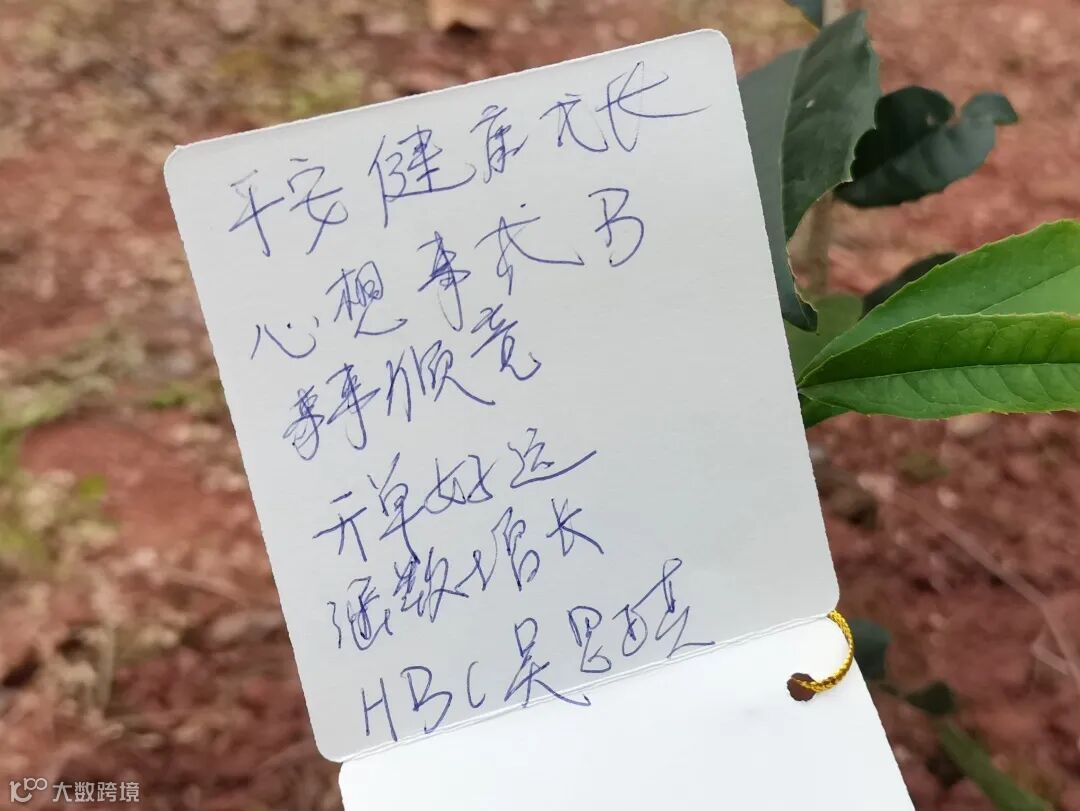 平安健康成长
心想事成 B
事事顺意
开单好运
函数增长
HBC吴思
大数跨境